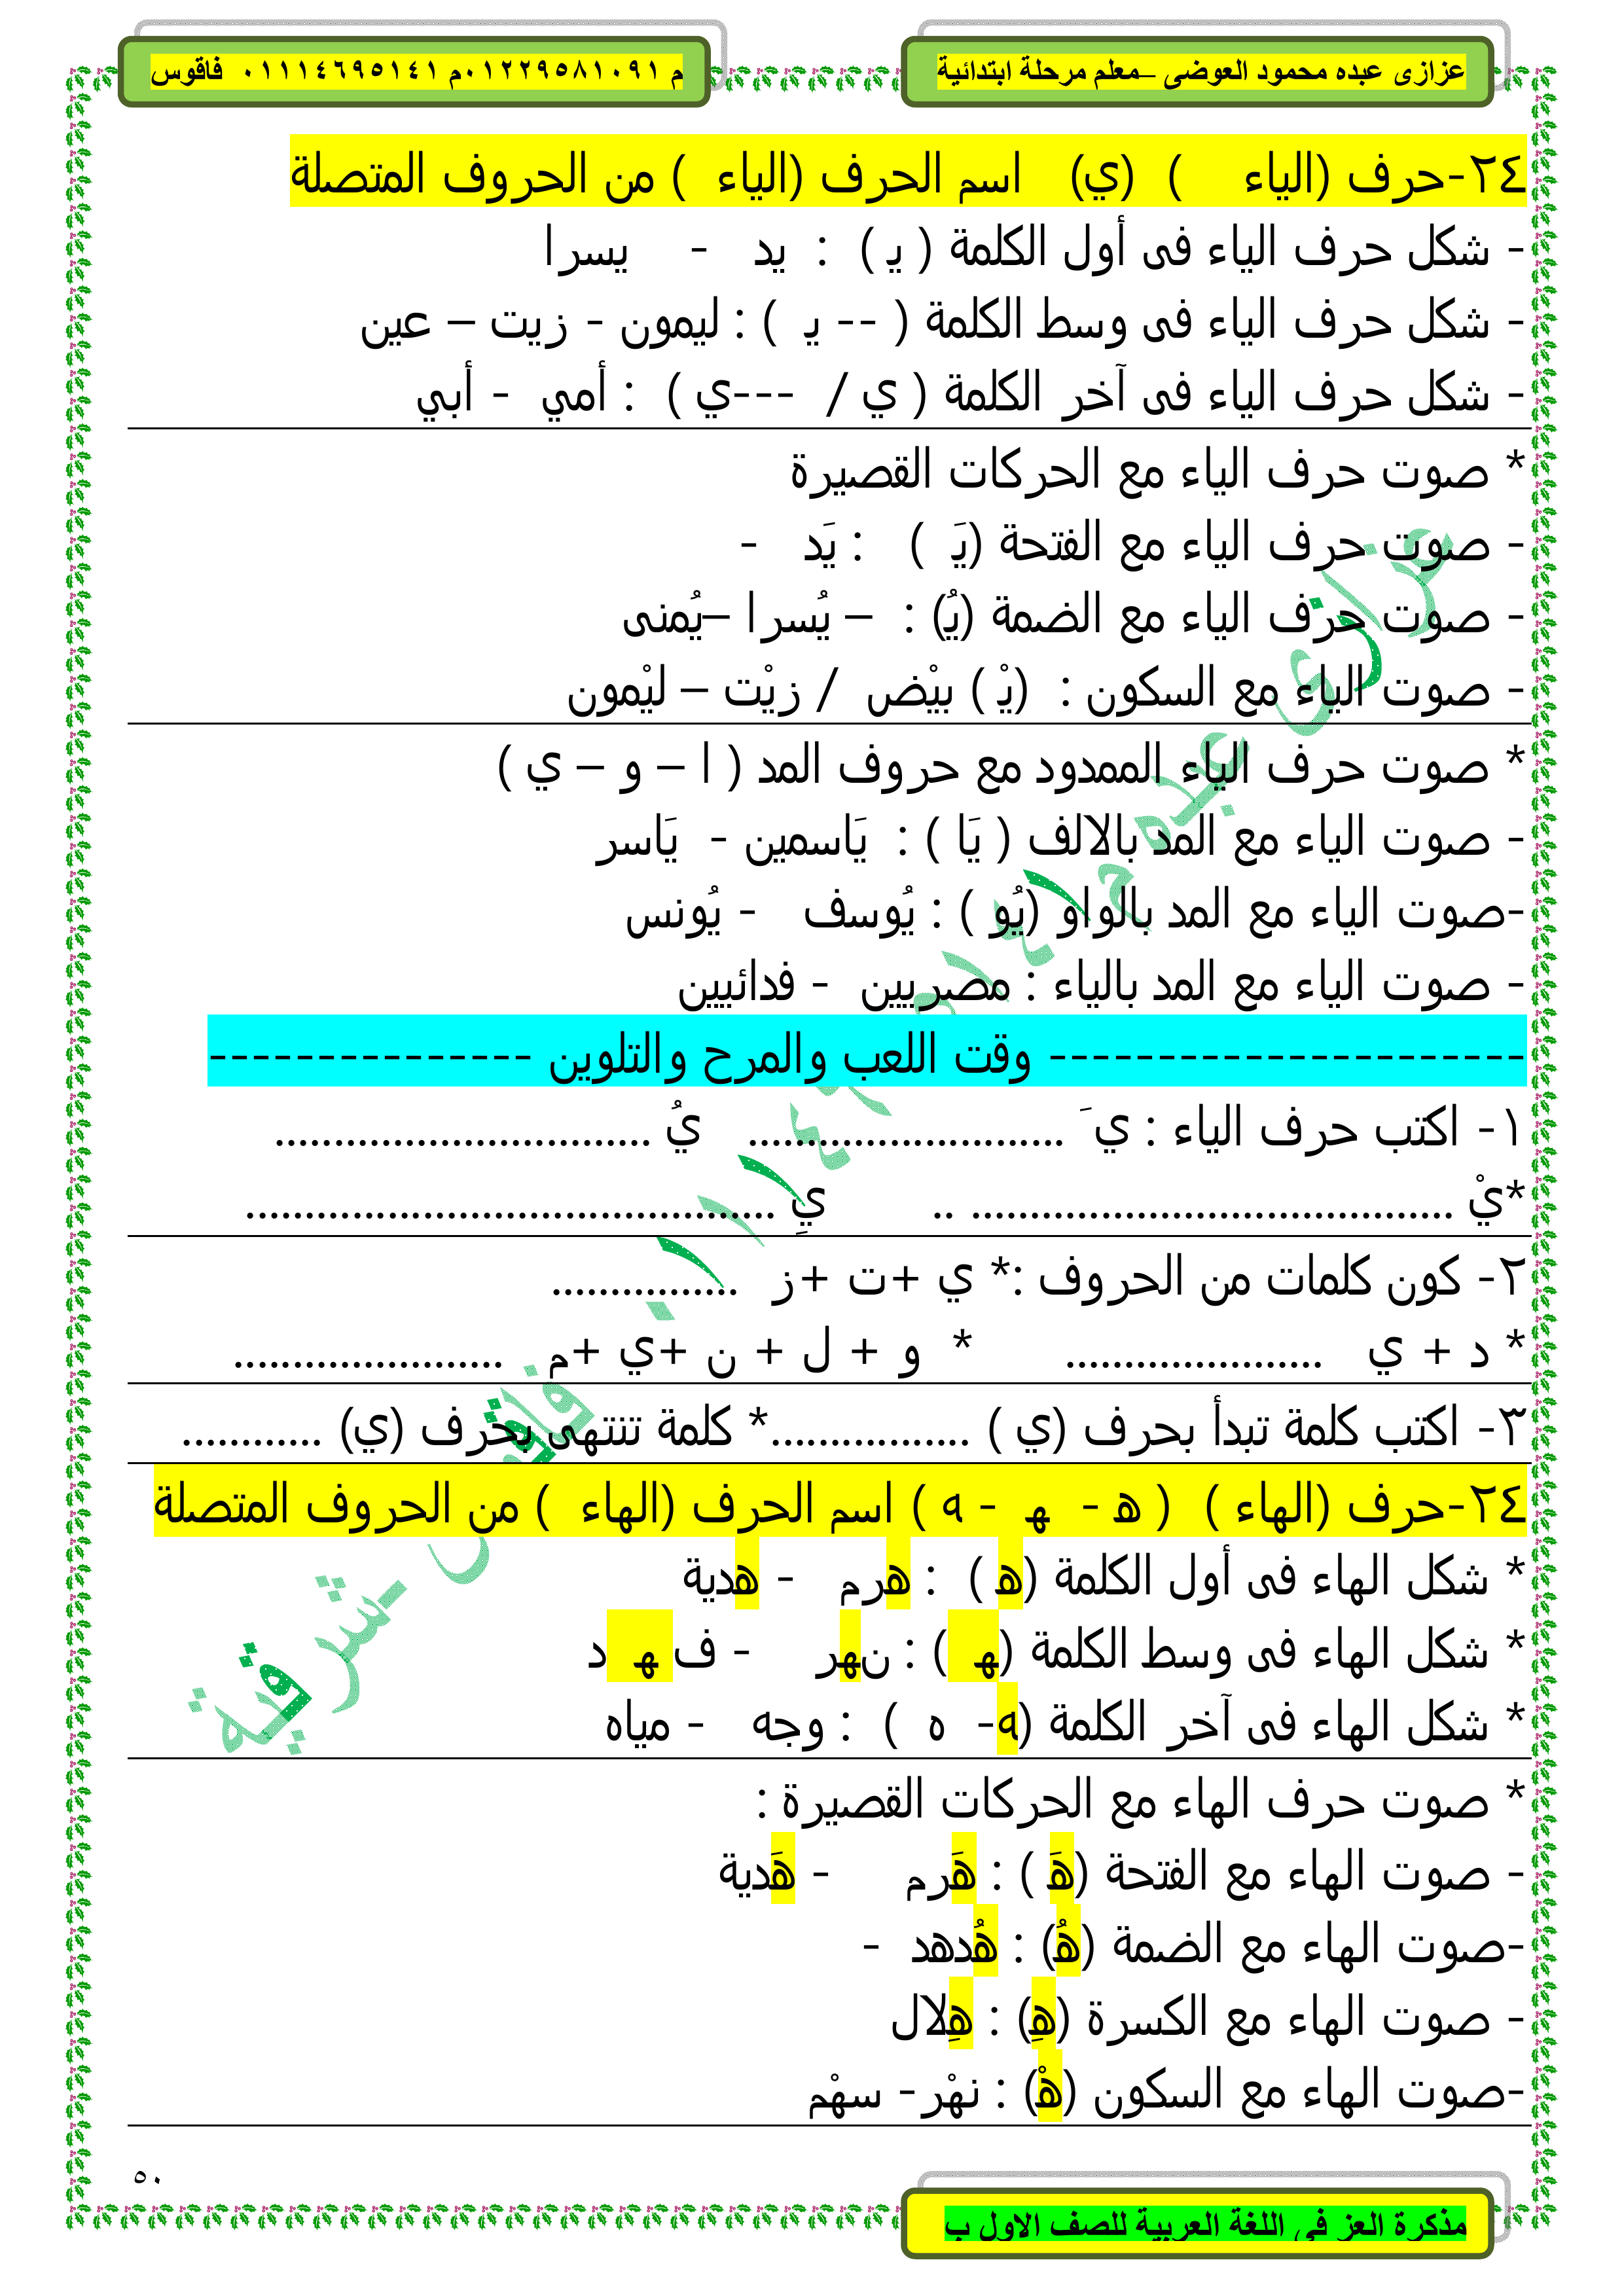 عزازى عبده محمود العوضى –معلم مرحلة ابتدائية
م ٠١٢٢٩٥٨١٠٩١م ٠١١١٤٦٩٥١٤١ فاقوس
٢٤-حرف (الياء ) (ي) اسم الحرف (الياء ) من الحروف المتصلة
- شكل حرف الياء فى أول الكلمة ( يـ ) : يد - يسرا
- شكل حرف الياء فى وسط الكلمة ( -- يـ ) : ليمون - زيت – عين
- شكل حرف الياء فى آخر الكلمة ( ي / ---ي ) : أمي - أبي
* صوت حرف الياء مع الحركات القصيرة
- صوت حرف الياء مع الفتحة (يَـ ) : يَد -
- صوت حرف الياء مع الضمة (يُـ) : – يُسرا –يُمنى
- صوت الياء مع السكون : (يْـ ) بيْض / زيْت – ليْمون
* صوت حرف الياء الممدود مع حروف المد ( ا – و – ي )
- صوت الياء مع المد بالالف ( يَا ) : يَاسمين - يَاسر
-صوت الياء مع المد بالواو (يُو ) : يُوسف - يُونس
- صوت الياء مع المد بالياء : مصريين - فدائيين
---------------------- وقت اللعب والمرح والتلوين ---------------
١- اكتب حرف الياء : ي َ ........................... يُ ................................
*يْ ......................................... .. يِ .............................................
٢- كون كلمات من الحروف :* ي +ت +ز ................
* د + ي ...................... * و + ل + ن +ي +م .......................
٣- اكتب كلمة تبدأ بحرف (ي ) .................* كلمة تنتهى بحرف (ي) ............
٢٤-حرف (الهاء ) ( هـ - ـهـ - ـه ) اسم الحرف (الهاء ) من الحروف المتصلة
* شكل الهاء فى أول الكلمة (هـ ) : هرم - هدية
* شكل الهاء فى وسط الكلمة (ـهـ ) : نهر - فـ ـهـ ـد
* شكل الهاء فى آخر الكلمة (ـه- ه ) : وجه - مياه
* صوت حرف الهاء مع الحركات القصيرة :
- صوت الهاء مع الفتحة (هَـ ) : هَرم - هَدية
-صوت الهاء مع الضمة (هُـ) : هُدهد -
- صوت الهاء مع الكسرة (هِـ) : هِلال
-صوت الهاء مع السكون (هْـ) : نهْر- سهْم
٥٠
مذكرة العز فى اللغة العربية للصف الاول ب